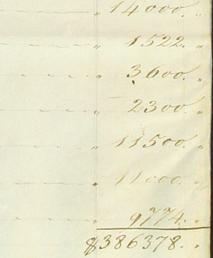 " 14000. "
" 1522. "
" 3600. "
" 2300. "
" 11500. "
" 11000. "
" 9774. "
$386378. "